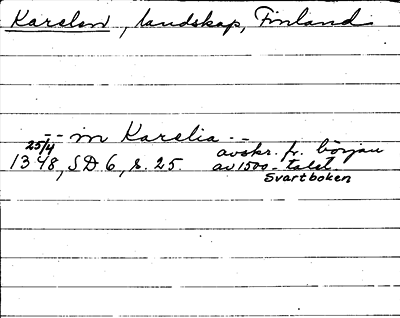 Karelen, landskap, Finland
-- in Karelia --
25/4
1348, SD 6, s. 25. avskr. fr. början
av 1500-talet.
Svartboken